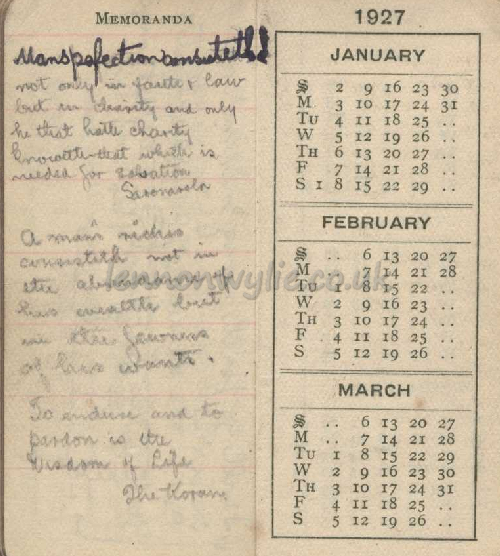 MEMORANDA
Mans pefection consisteth
not only in faith & law
but in charity and only
he that hath charity
knoweth that which is
needed for salvation
Savonarola
A man's riches
consisteth not in
the abundance of
his wealth but
in the fewness
of his wants.
To endure and to
pardon is the
Wisdom of Life
The Koran
lennonwylie.co.uk
1927
JANUARY
S 2 9 16 23 30
M 3 10 17 24 31
TU 4 11 18 25 ..
W 5 12 19 26 ..
TH 6 13 20 27 ..
F 7 14 21 28 ..
S 1 8 15 22 29 ..
FEBRUARY
S .. 6 13 20 27
M .. 7 14 21 28
TU 1 8 15 22 ..
W 2 9 16 23 ..
TH 3 10 17 24 ..
F 4 11 18 25 ..
S 5 12 19 26 ..
MARCH
S .. 6 13 20 27
M .. 7 14 21 28
TU 1 8 15 22 29
W 2 9 16 23 30
TH 3 10 17 24 31
F 4 11 18 25 ..
S 5 12 19 26 ..